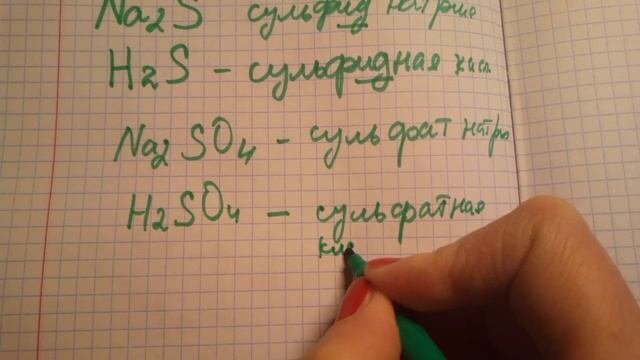 Na2S сульфид натрия
H2S – сульфидная кисл
Na2SO4 – сульфат натри
H2SO4 – сульфатная
кис